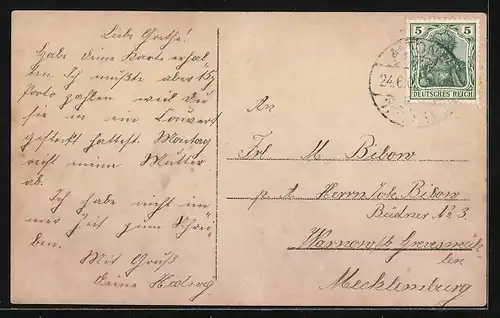 Liebe Grethe!
Habe deine Karte erhal-
ten. Ich mußte aber
Porto zahlen weil du
sie in ein Couvert
gesteckt hattest. Montag
reist meine Mutter
ab.
Ich habe nicht im
mer Zeit zum Schrei
ben.
Mit Gruß
deine Hedwig
5 5
DEUTSCHES REICH
24.6.
An
Frl M Bibow
p. A Herrn Joh. Bibow
Büdner № 3.
Warnow b/ Grevesmüh
len
Mecklenburg